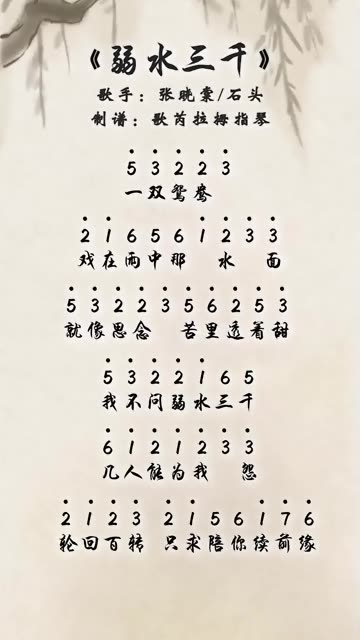 《弱水三千》
歌手：张晓棠/石头
制谱：歌芮拉拇指琴
5 3 2 2 3
一双鸳鸯
2 1 6 5 6 1 2 3 3
戏在雨中那 水 面
5 3 2 2 3 5 6 2 5 3
就像思念 苦里透着甜
5 3 2 2 1 6 5
我不问弱水三千
6 1 2 1 2 3 3
几人能为我 怨
2 1 2 3 2 1 5 6 1 7 6
轮回百转 只求陪你续前缘